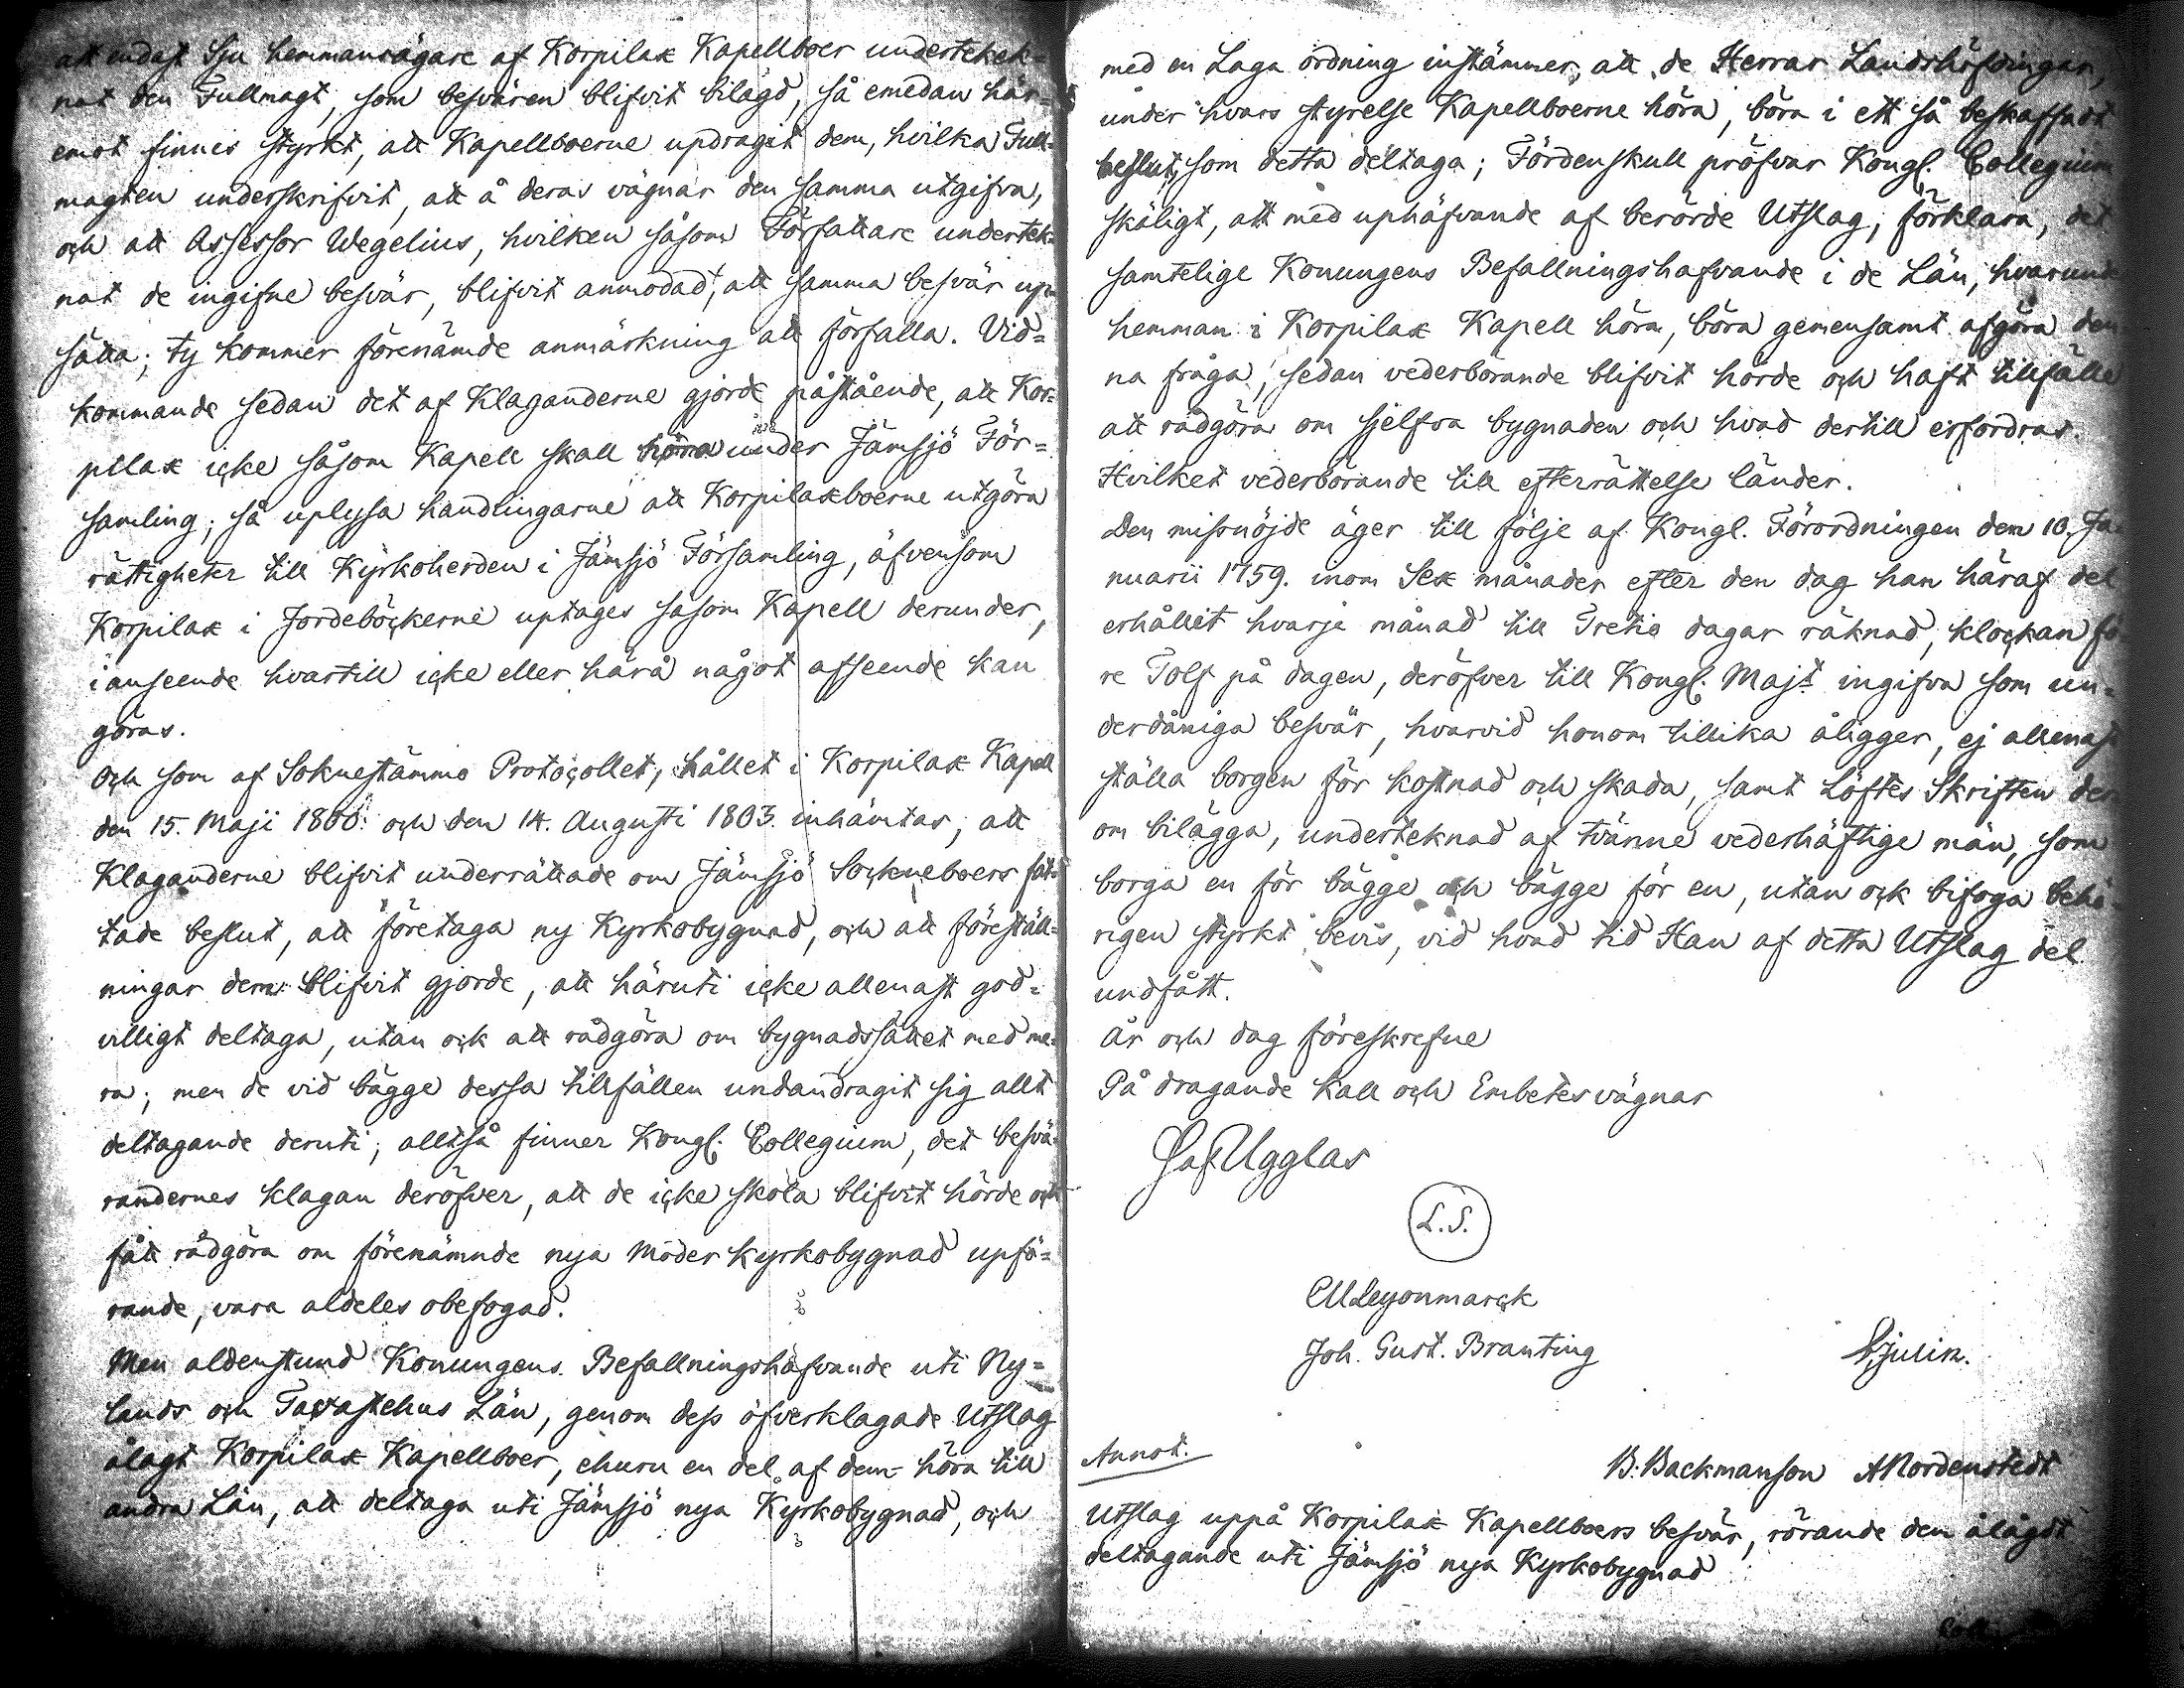 att endast Sju hemmansägare af Korpilax Kapellboer undertekek=
nat den Fullmagt, som besvären blifvit bilagd, så emedan här=
emot finnes styrkt, att Kapellboerne updragit dem, hvilka Full=
magten underskrifvit, att å deras vägnar den samma utgifva,
och att Assessor Wegelius, hvilken såsom Författare undertek=
nat de ingifne besvär, blifvit anmodad, att samma besvär up=
sätta; ty kommer förenämde anmärkning att förfalla. Vid=
kommande sedan det af Klaganderne gjorde påstående, att Kor=
pilax icke såsom Kapell skall höra under Jämsjö För=
samling; så uplysa handlingarne att Korpilaxboerne utgöra
rättigheter till Kyrkoherden i Jämsjö Församling, äfvensom
Korpilax i Jordeböckerne uptages såsom Kapell derunder,
i anseende hvartill icke eller härå något afseende kan
göras.
Och som af Soknestämmo Protocollet, hållet i Korpilax Kapell
den 15. Maji 1800. och den 14. Augusti 1803. inhämtas, att
Klaganderne blifvit underrättade om Jämsjö Sockneboers fat=
tade beslut, att företaga ny Kyrkobygnad, och att föreställ=
ningar dem blifvit gjorde, att häruti icke allenast god=
villigt deltaga, utan ock att rådgöra om bygnadssättet med me=
ra; men de vid bägge dessa tillfällen undandragit sig allt
deltagande deruti; alltså finner Kongl. Collegium, det besvä=
randernes klagan deröfver, att de icke skola blifvit hörde och
fått rådgöra om förenämnde nya Moderkyrkobygnad upfö=
rande, vara aldeles obefogad.
Men aldenstund Konungens Befallningshafvande uti Ny=
lands och Tavastehus Län, genom dess öfverklagade Utslag
ålagt Korpilax Kapellboer, ehuru en del af dem höra till
andra Län, att deltaga uti Jämsjö nya Kyrkobygnad, och
med en Laga ordning instämmer, att de Herrar Landshöfdingar,
under hvars styrelse Kapellboerne höra, böra i ett så beskaffadt
beslut, som detta deltaga; Fördenskull pröfvar Kongl. Collegium
skäligt, att med uphäfvande af berörde Utslag, förklara, det
samtelige Konungens Befallningshafvande i de Län, hvarunde
hemman i Korpilax Kapell höra, böra gemensamt afgöra den
na fråga, sedan vederbörande blifvit hörde och haft tillfälle
att rådgöra om sjelfva bygnaden och hvad dertill erfordras.
Hvilket vederbörande till efterrättelse länder.
Den missnöjde äger till följe af Kongl. Förordningen dem 10. Ja=
nuarii 1759. inom Sex månader efter den dag han häraf del
erhållit hvarje månad till Tretio dagar räknad, klockan fö
re Tolf på dagen, deröfver till Kongl. Majt ingifva som un=
derdåniga besvär, hvarvid honom tillika åligger, ej allenast
ställa borgen för kostnad och skada, samt Löftes Skriften der
om bilägga, underteknad af tvänne vederhäftige män, som
borga en för bägge och bägge för en, utan ock bifoga behö=
rigen styrkt bevis, vid hvad tid Han af detta Utslag del
undfått.
År och dag föreskrefne
På dragande Kall och Embetes vägnar
S af Ugglas
L.S.
CU Leyonmarck
Joh. Gust. Branting
Sjulin.
Annot.
B. Backmanson ANordenstedt
Utslag uppå Korpilax Kapellboers besvär, rörande dem ålagdt
deltagande uti Jämsjö nya Kyrkobygnad